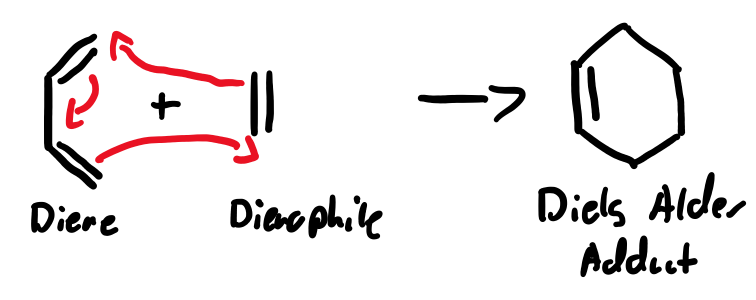 +
Diene
Dienophile
Diels Alder
Adduct